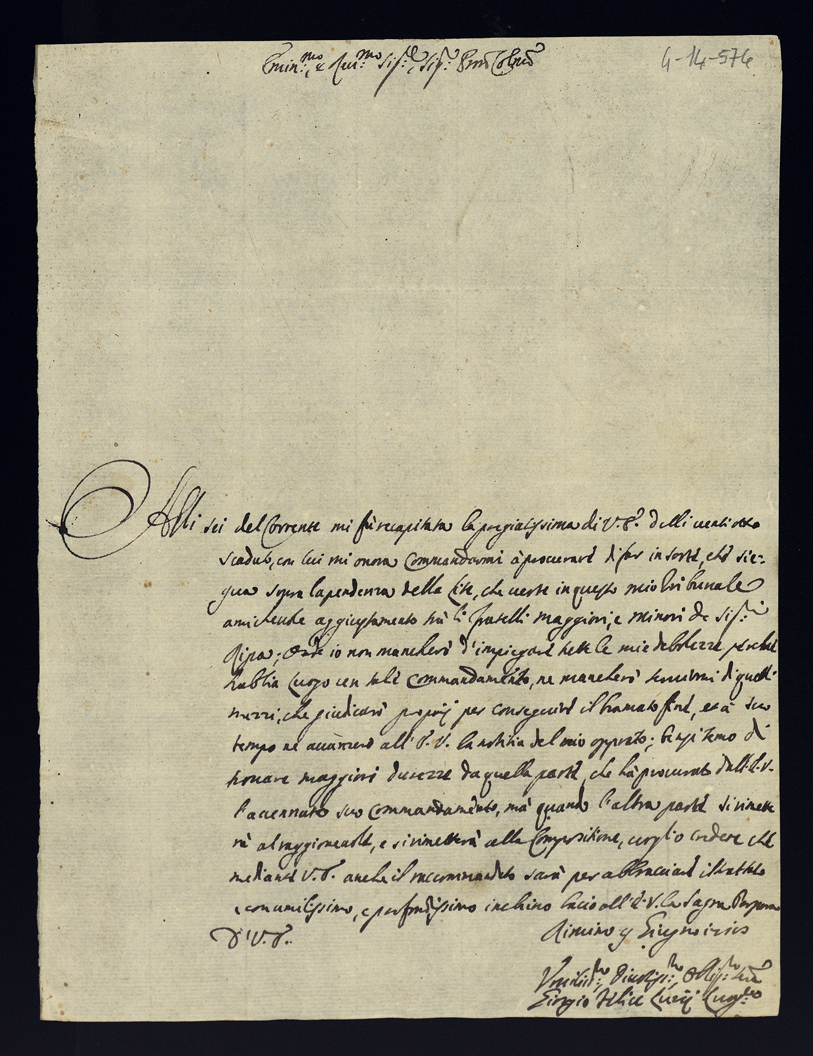 Emin.mo, e Rev.mo Sig.re, Sig.r Pron Colmo
4-14-574
Alli sei del Corrente mi fù recapitata la pregiatissima di V.E. delli venti otto
scaduto, con cui mi onora Commandarmi à procurare di far in sorte, chè sie-
gua sopra la pendenza della lite, che verte in questo mio tribunale
amichevole aggiustamento trà li fratelli maggiori, e minori de Sig.ri
Ripa; Onde io non mancherò d'impiegare tutte le mie debolezze perchè
habbia luogo un tale Commandamento, ne mancherò servirmi di quelli
mezzi, che giudicarò proprij per conseguire il bramato fine, et à suo
tempo ne avanzerò all'E.V. la notitia del mio operato; temo di
trovare maggiori durezze da quella parte, che hà procurato dall'E.V.
l'accennato suo Commandamento, mà quando l'altra parte si rimette
rà al raggionevole, e si rimetterà alla Compositione, voglio credere che
mediante V.E. anche il raccommandato sarà per abbracciare il trattato
e con umilissimo, e profondissimo inchino bacio all'E.V. la Sagra Porpora
D' V.E.
Rimino 9 Giugno
Umiliss.mo Divotiss.mo, Obligat.mo
Felice